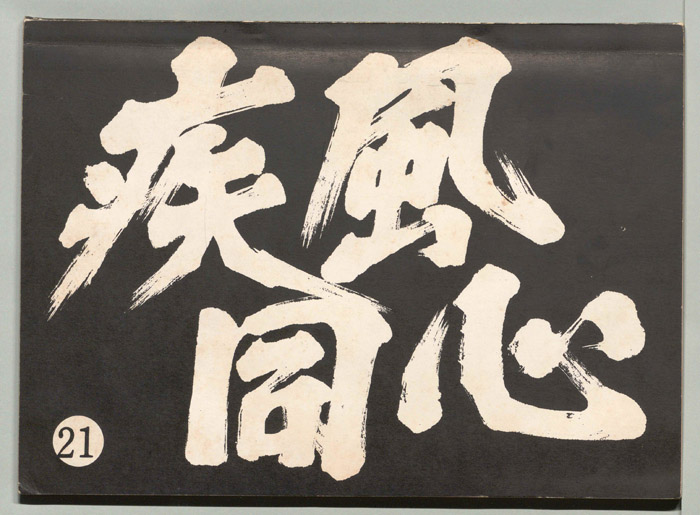 疾風
同心
21